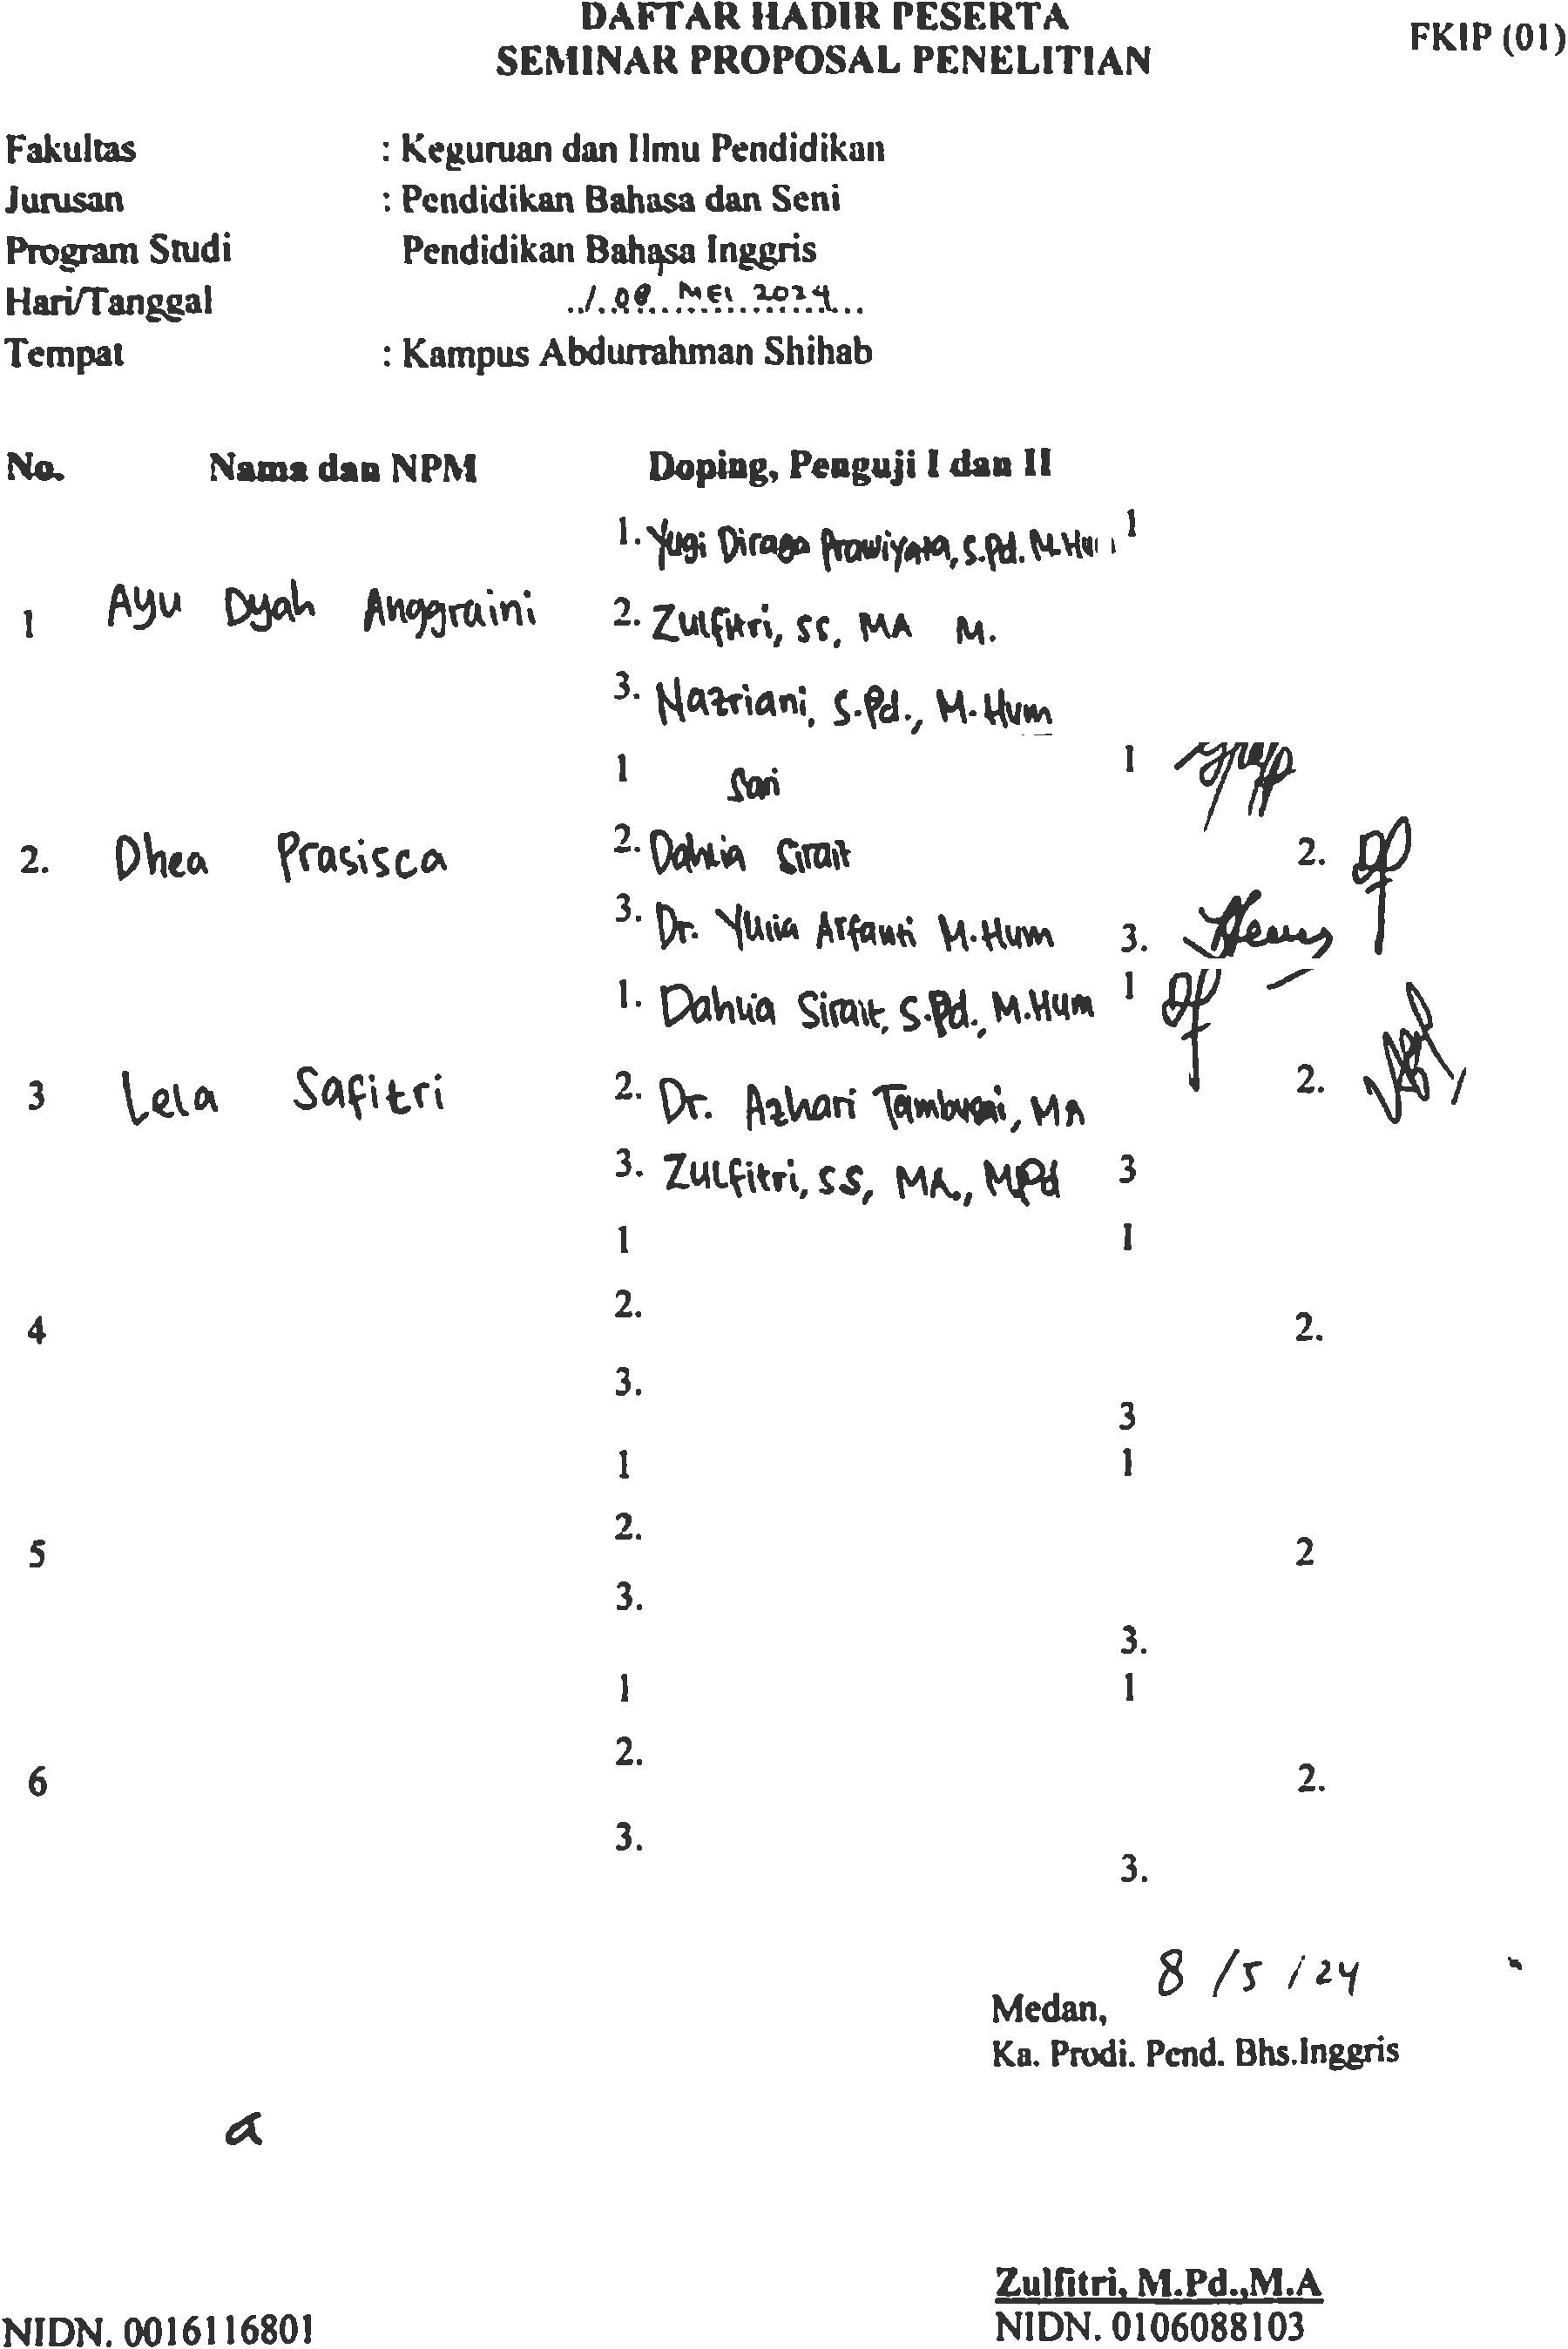 DAFTAR HADIR PESERTA
SEMINAR PROPOSAL PENELITIAN
FKIP (01)
Fakultas : Keguruan dan Ilmu Pendidikan
Jurusan : Pendidikan Bahasa dan Seni
Program Studi Pendidikan Bahasa Inggris
Hari/Tanggal ../.08..MEI.2024...
Tempat : Kampus Abdurrahman Shihab
No. Nama dan NPM Doping, Penguji I dan II
1. Yugi Diraga Prawiyata, S.Pd. M.Hum 1
1 Ayu Dyah Anggraini 2. Zulfitri, SS, MA M.
3. Nazriani, S.Pd., M.Hum
1 Sari 1
2. Dhea Prasisca 2. Dahlia Sirait 2.
3. Dr. Yulia Arfanti M.Hum 3.
1. Dahlia Sirait, S.Pd., M.Hum 1
3 Lela Safitri 2. Dr. Azhari Tambusai, MA 2.
3. Zulfitri, SS, MA., MPd 3
1 1
2.
4 2.
3.
3
1 1
2.
5 2
3.
3.
1 1
2.
6 2.
3.
3.
8 / 5 / 24
Medan,
Ka. Prodi. Pend. Bhs.Inggris
a
Zulfitri, M.Pd.,M.A
NIDN. 0016116801 NIDN. 0106088103